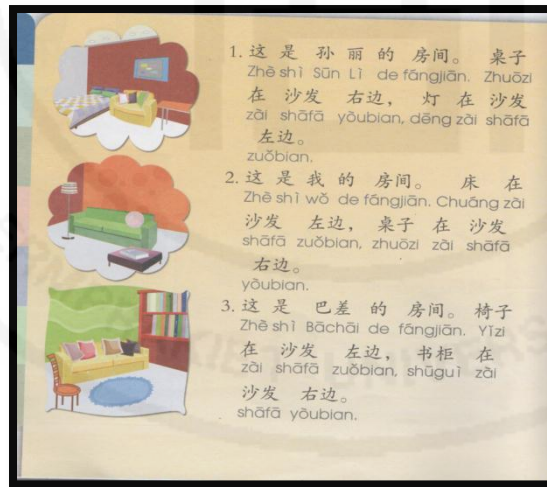 1. 这 是 孙 丽 的 房间。 桌子
Zhè shì Sūn Lì de fángjiān. Zhuōzi
在 沙发 右边, 灯 在 沙发
zài shāfā yòubian, dēng zài shāfā
左边。
zuǒbian.
2. 这 是 我 的 房间。 床 在
Zhè shì wǒ de fángjiān. Chuáng zài
沙发 左边, 桌子 在 沙发
shāfā zuǒbian, zhuōzi zài shāfā
右边。
yòubian.
3. 这 是 巴差 的 房间。 椅子
Zhè shì Bāchāi de fángjiān. Yǐzi
在 沙发 左边, 书柜 在
zài shāfā zuǒbian, shūguì zài
沙发 右边。
shāfā yòubian.